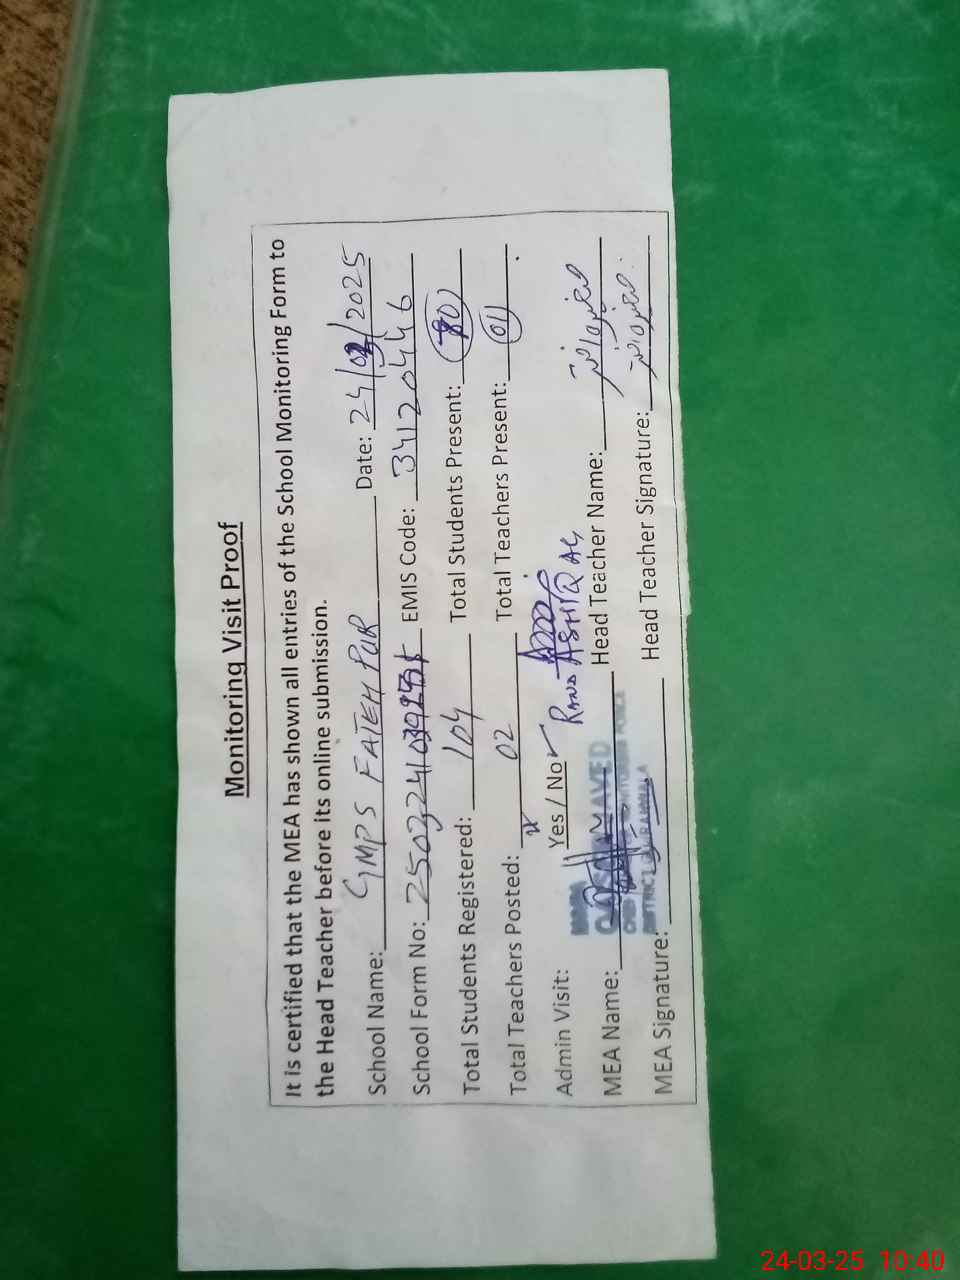 Monitoring Visit Proof
It is certified that the MEA has shown all entries of the School Monitoring Form to
the Head Teacher before its online submission.
School Name: GMPS FATEH PUR Date: 24/03/2025
School Form No: EMIS Code: 34120446
Total Students Registered: 104 Total Students Present: 80
Total Teachers Posted: 02 Total Teachers Present: 01
Admin Visit: Yes / No Rana ASHIQ AG
MEA Name: Head Teacher Name:
MEA Signature: Head Teacher Signature:
24-03-25 10:40